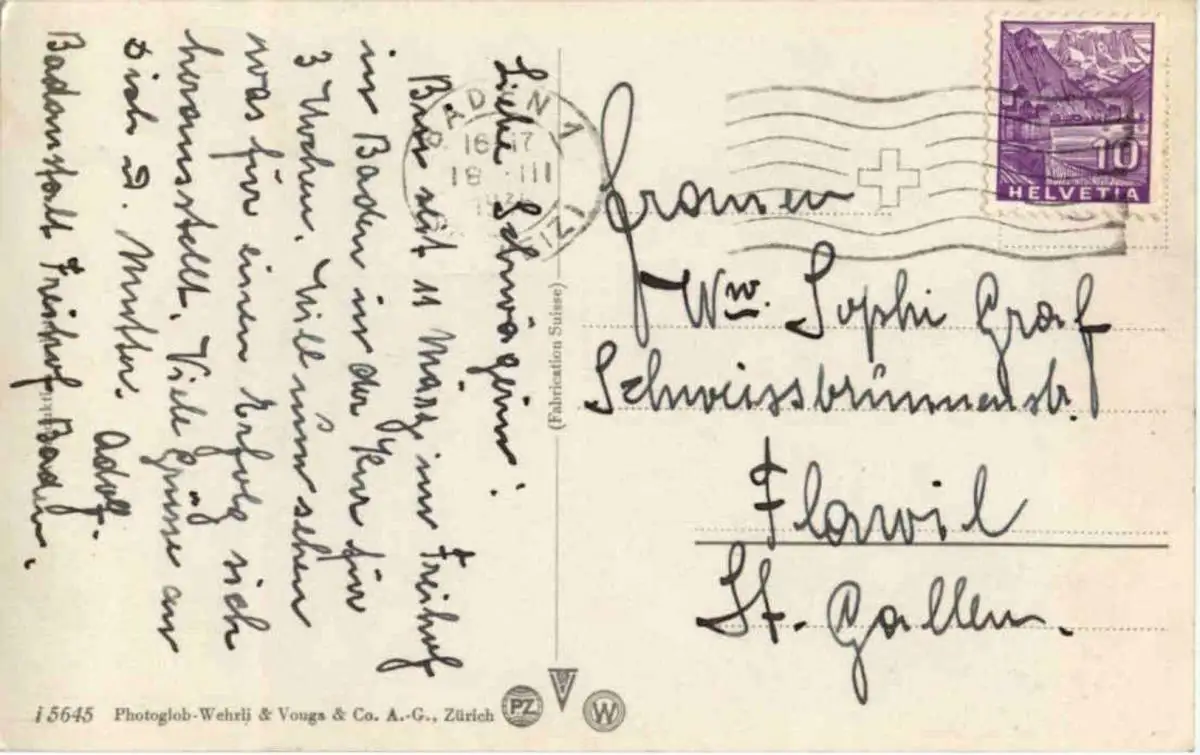 Liebe Schwägerin!
Bin seit 11 März im Freihof
in Baden in der Kur für
3 Wochen. Will nun sehen
was für einen Erfolg sich
herausstellt. Viele Grüsse an
Dich u. Mutter. Adolf.
Badanstalt Freihof Baden.
BADEN 1
16-17
18. III
(Fabrication Suisse)
10
HELVETIA
Frauen
Ww. Sophi Graf
Schweissbrünnenstr.
Flawil
St. Gallen.
i 5645 Photoglob-Wehrli & Vouga & Co. A.-G., Zürich PZ V W